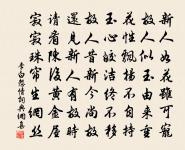 新人如花雖可寵
故人似玉由來重
花性飄揚不自持
玉心皎潔終不移
故人昔新今尚故
還見新人有故時
請看陳後黃金屋
寂寂珠簾生網絲
李白怨情詞典網